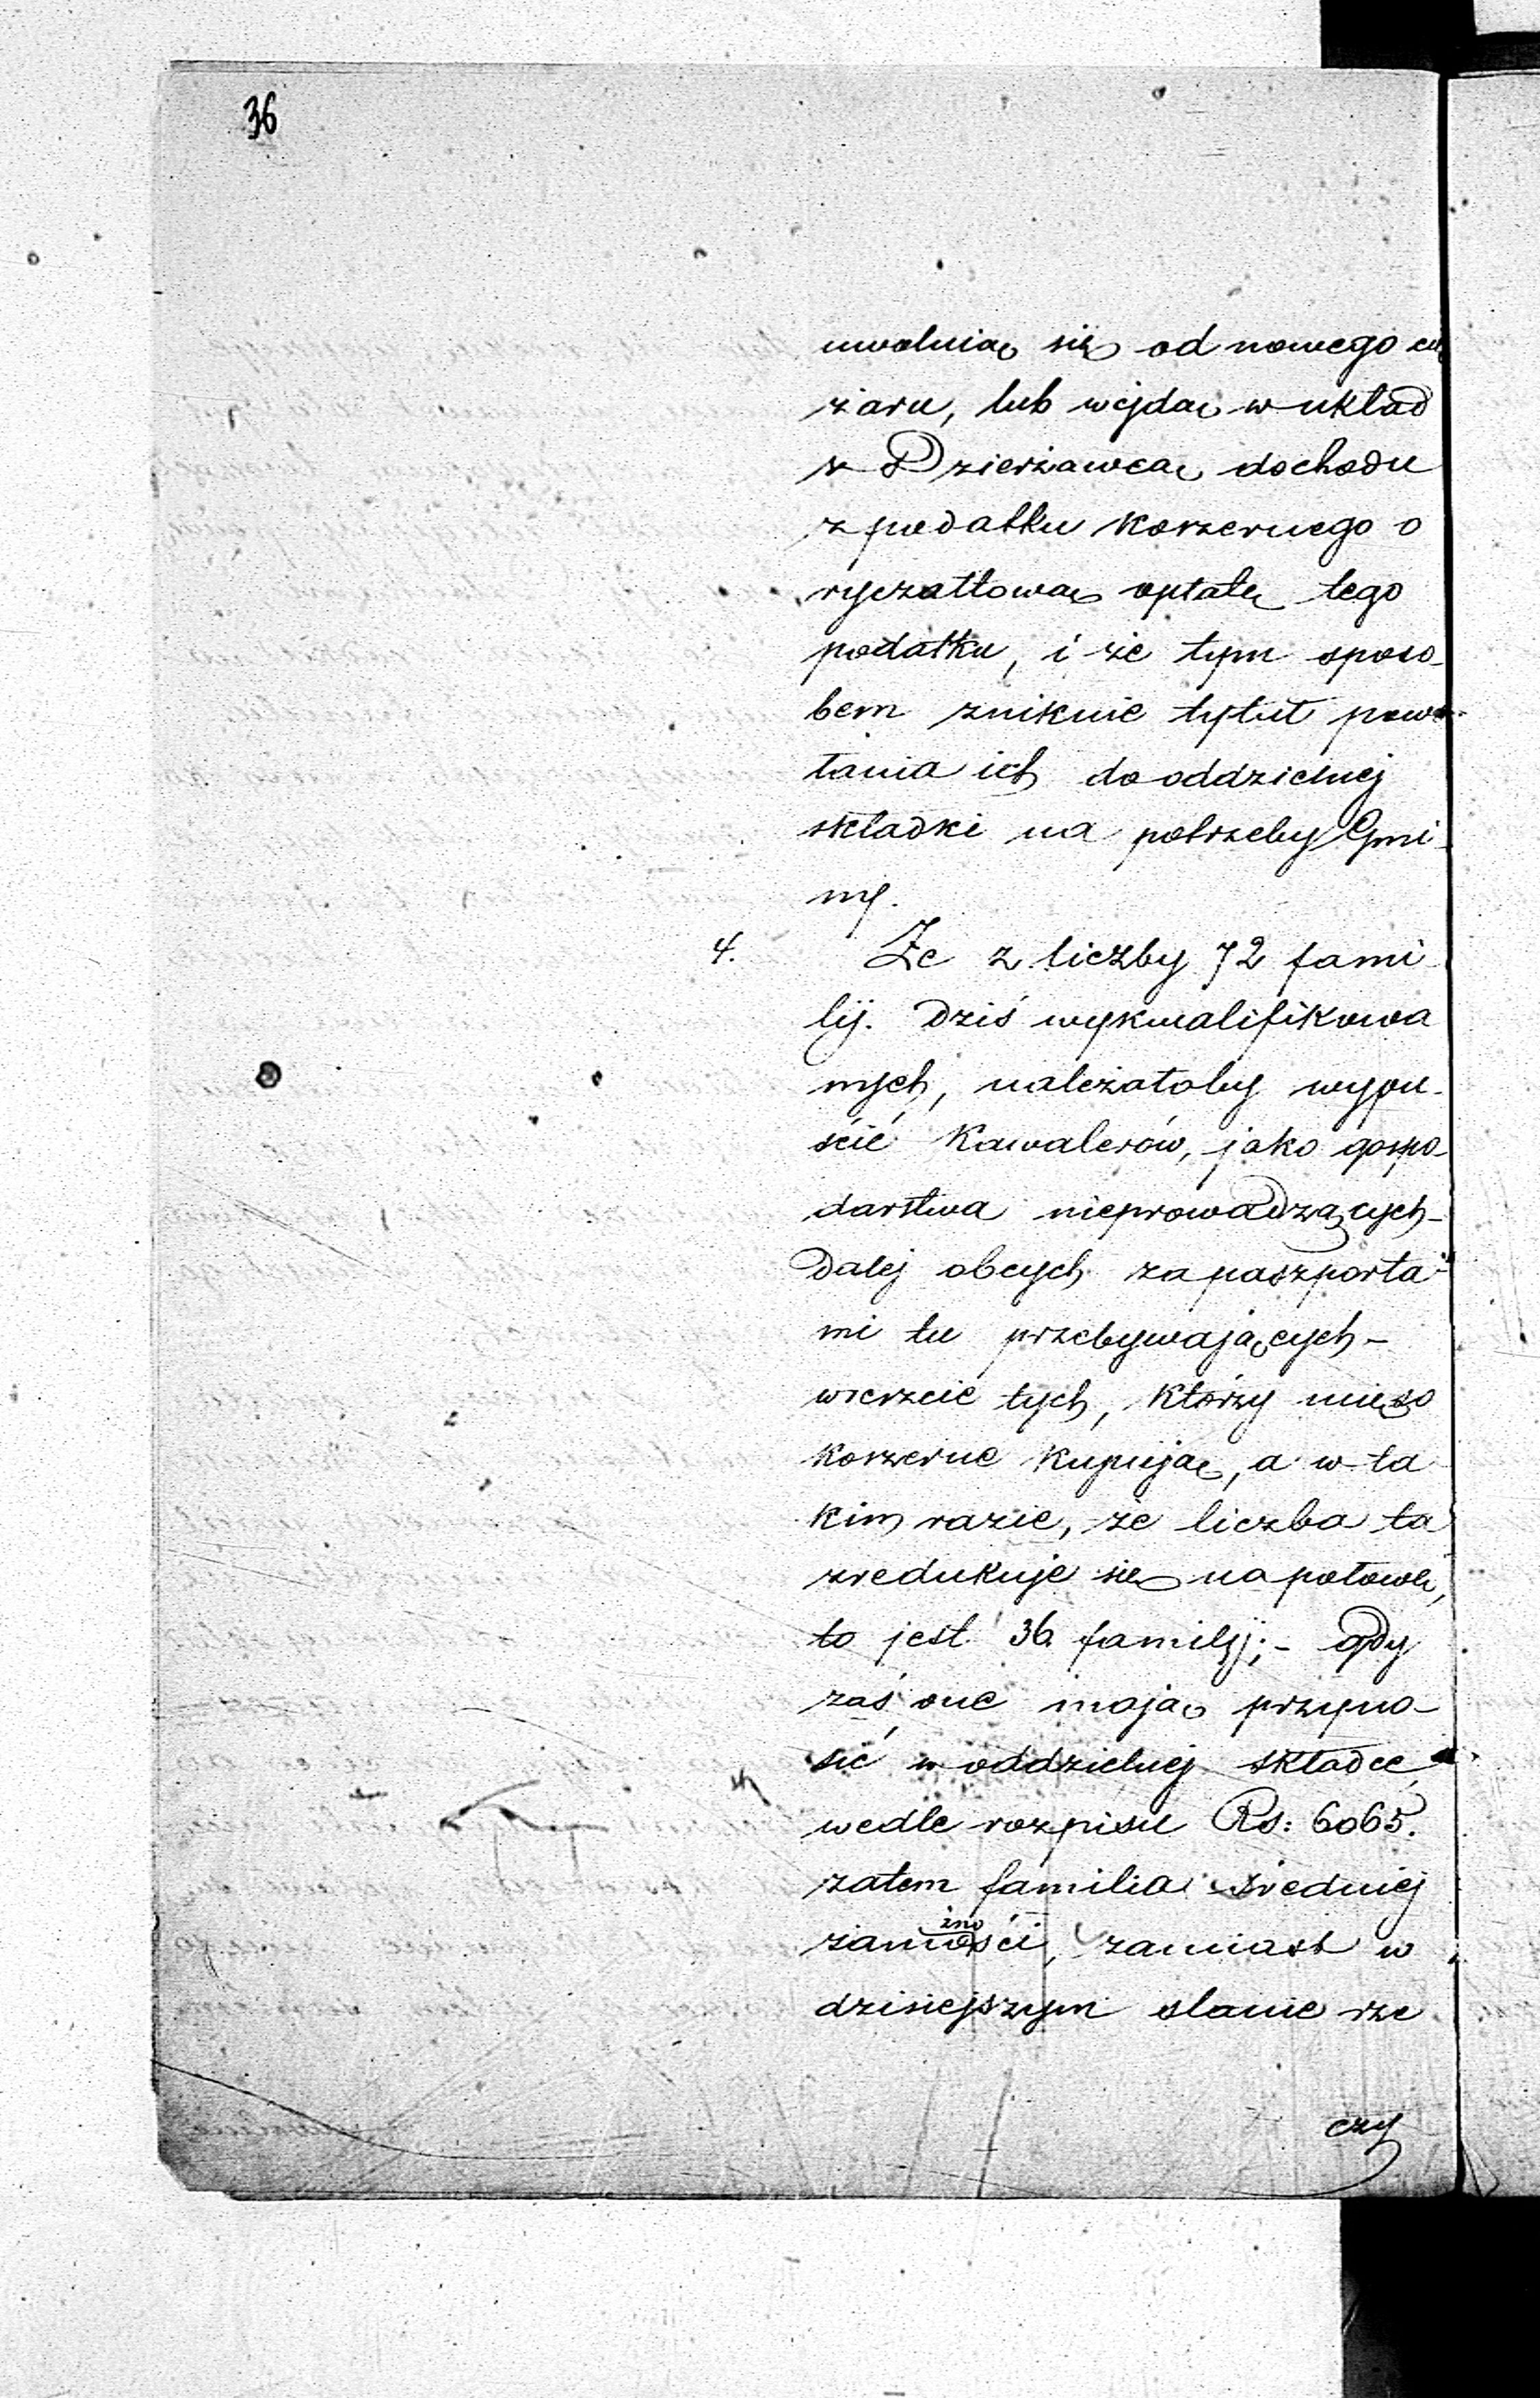 36
uwolnią się od nowego cię
żaru, lub wejdą w układ
z Dzierżawcą dochodu
z podatku koszernego o
ryczałtową opłatę tego
podatku, i że tym sposo-
bem zniknie tytuł powo-
łania ich do oddzielnej
składki na potrzeby Gmi-
ny.
4. Że z liczby 72 fami
lij. dziś wykwalifikowa
nych, należałoby wypu-
ścić Kawalerów, jako gospo-
darstwa nieprowadzących-
dalej obcych za paszporta-
mi tu przebywających-
wreszcie tych, którzy mięso
koszerne kupują, a w ta
kim razie, że liczba ta
zredukuje się na połowę,
to jest 36 familij;- gdy
zaś one mają przyno-
sić w oddzielnej składce,
wedle rozpisu Rs: 6065.
zatem familia średniej
żno
zamości, zamiast w
dzisiejszym stanie rze
czy